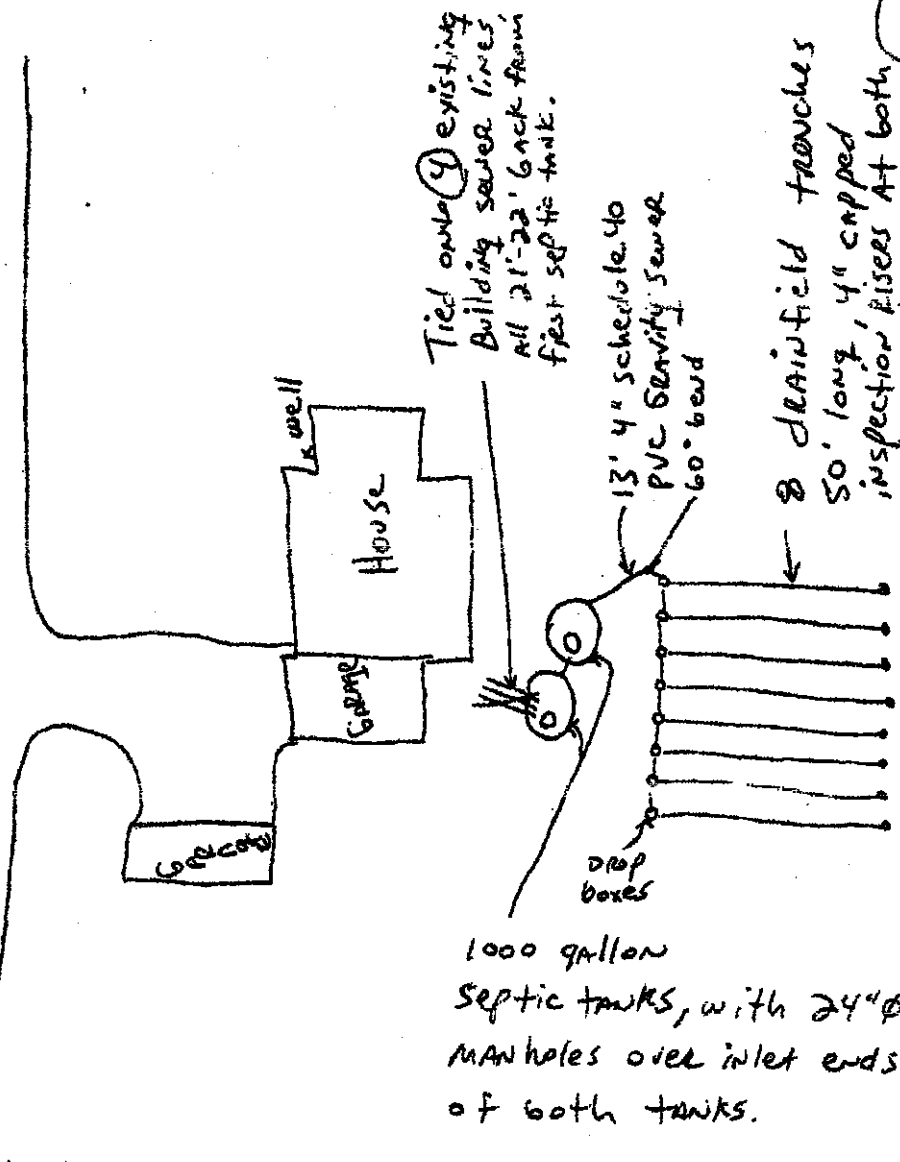 Tied onto (4) existing
Building sewer lines,
All 21'-22' back from
first septic tank.
well
House
GARAGE
GARAGE
13' 4" schedule 40
PVC GRAVITY SEWER
60° bend
8 DRAINfield TRENCHES
50' long, 4" CAPPED
INSPECTION RISERS At both
DROP
boxes
1000 gALLON
SEPtic tANKS, with 24"Ø
MANholes over inlet ends
of both tANKS.